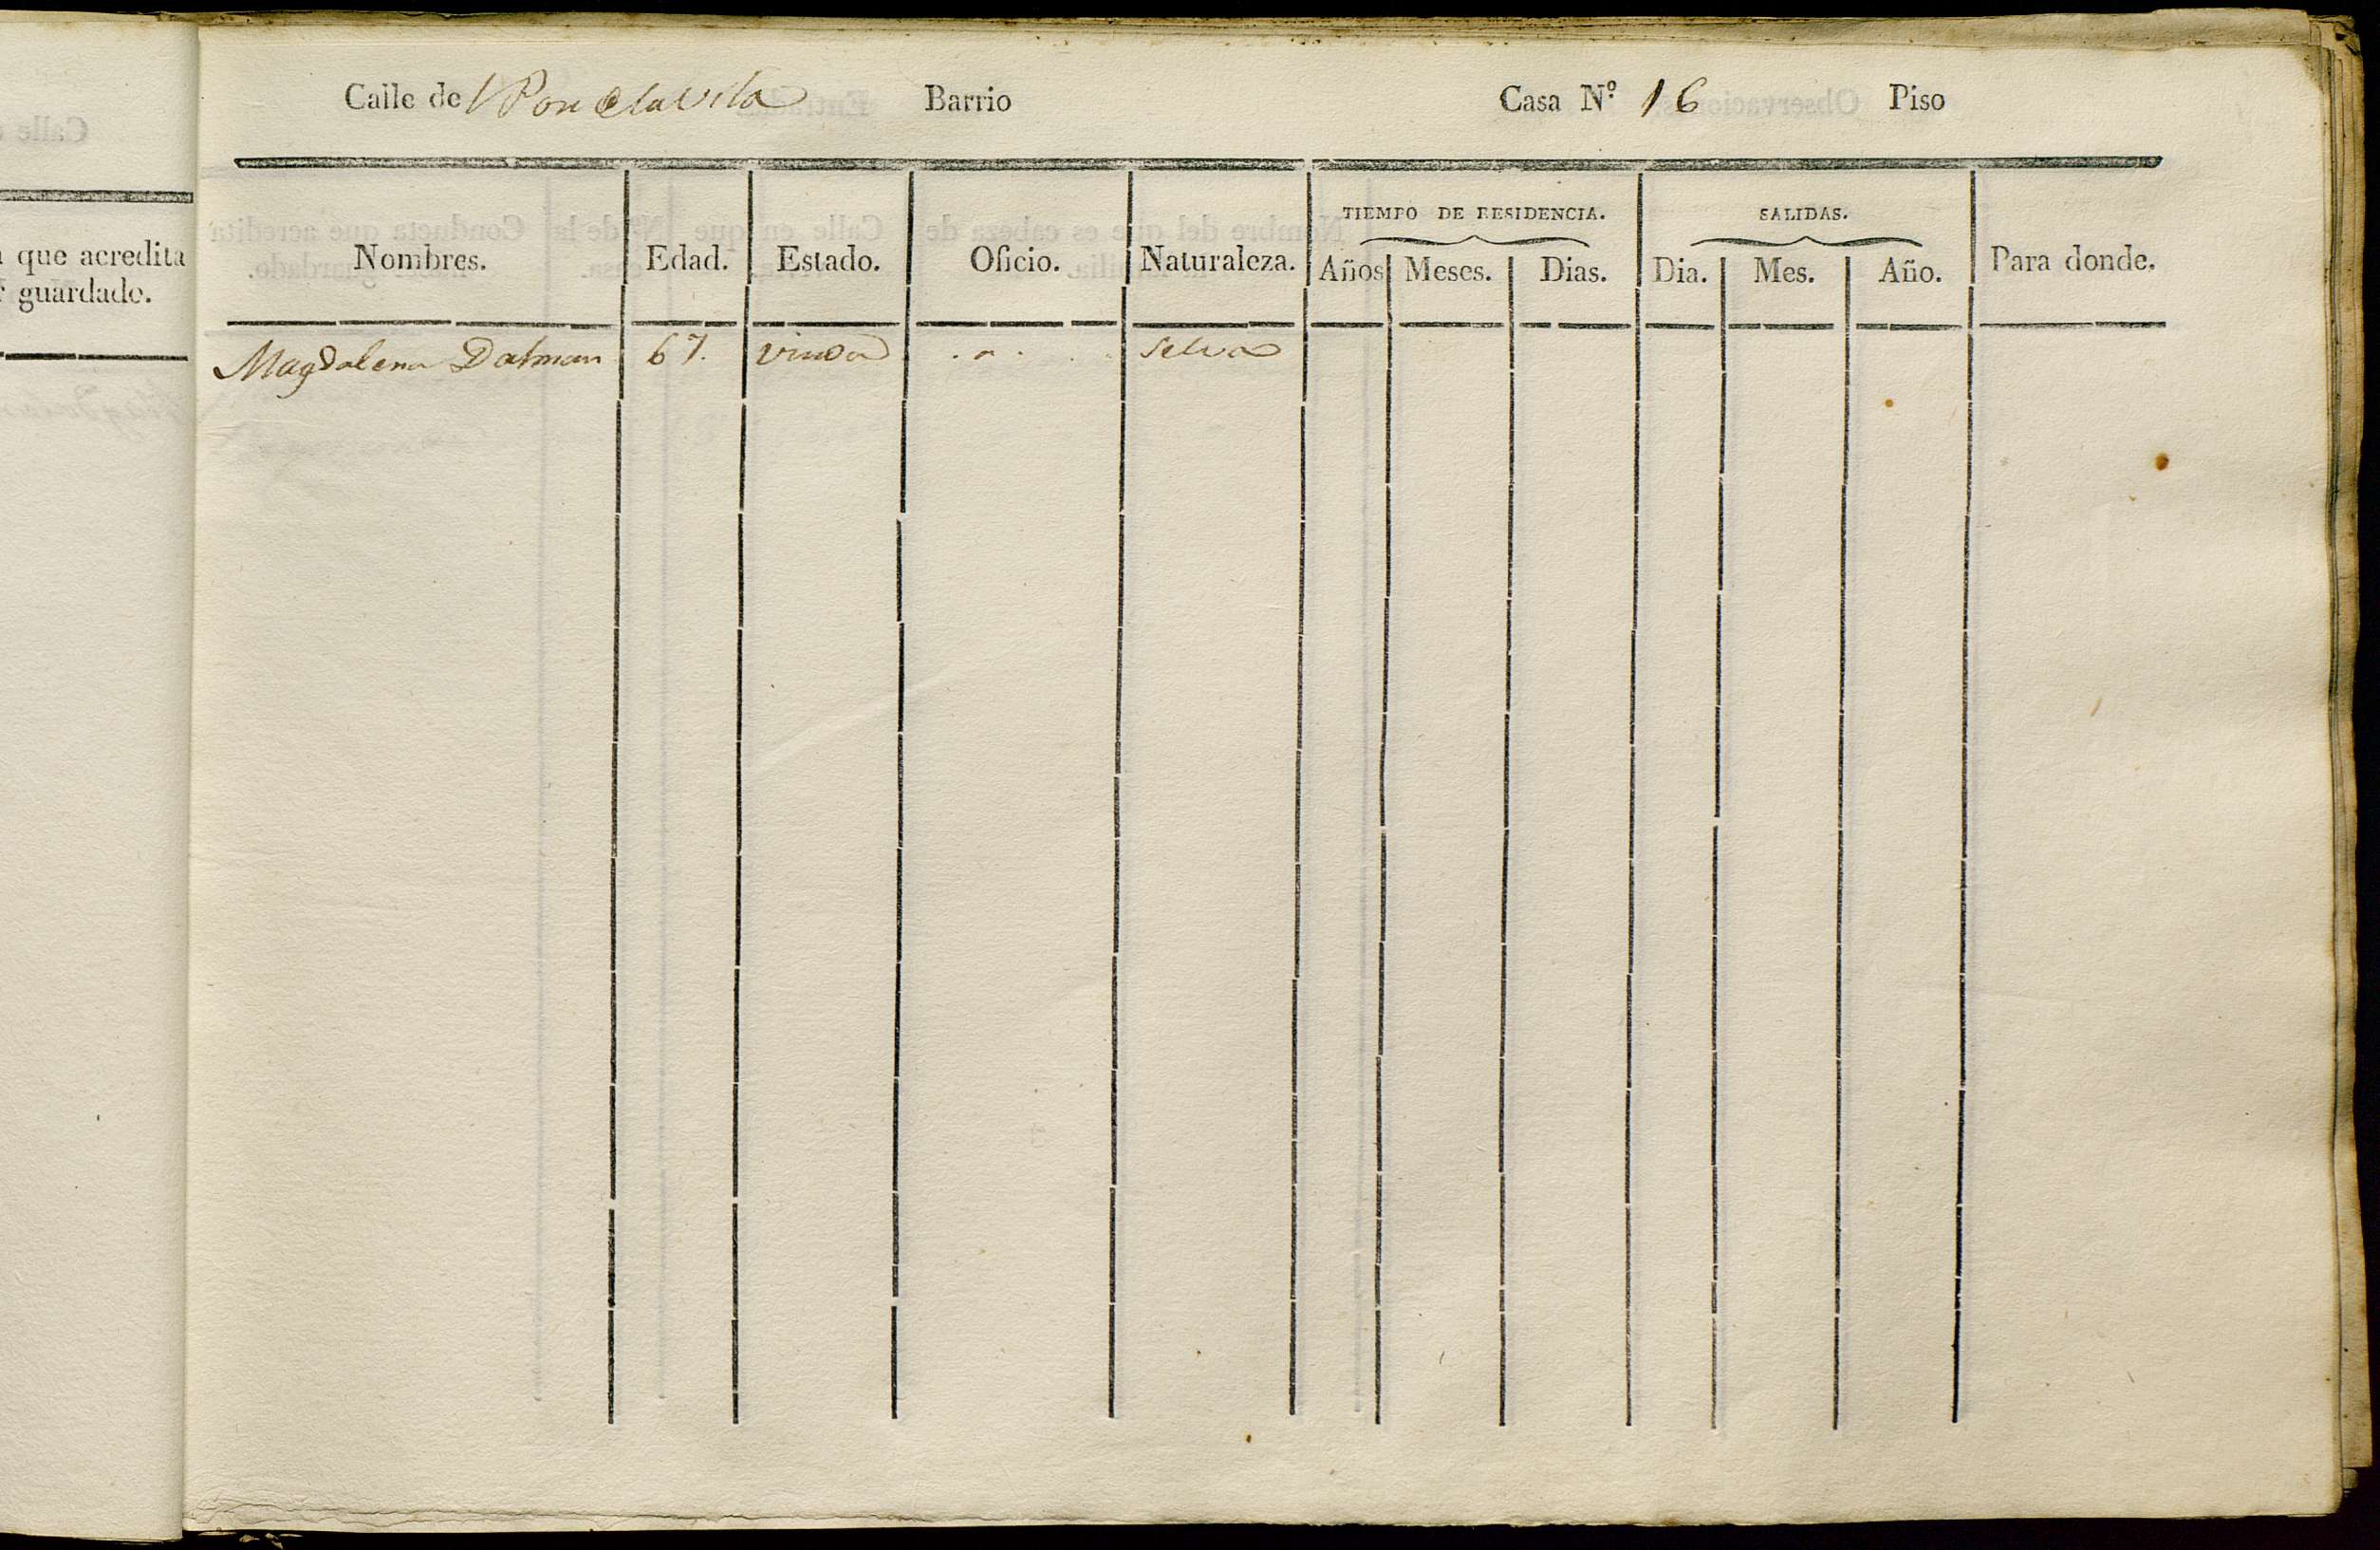 Calle del Pon de la Vila Barrio Casa N.º 16 Piso
que acredita
guardado.
TIEMPO DE RESIDENCIA. SALIDAS.
Nombres. Edad. Estado. Oficio. Naturaleza. Años Meses. Dias. Dia. Mes. Año. Para donde.
Magdalena Dalmau 67. viuda Selva